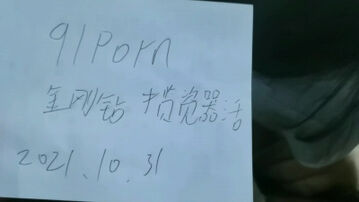 91Porn
金刚钻 揽瓷器活
2021.10.31